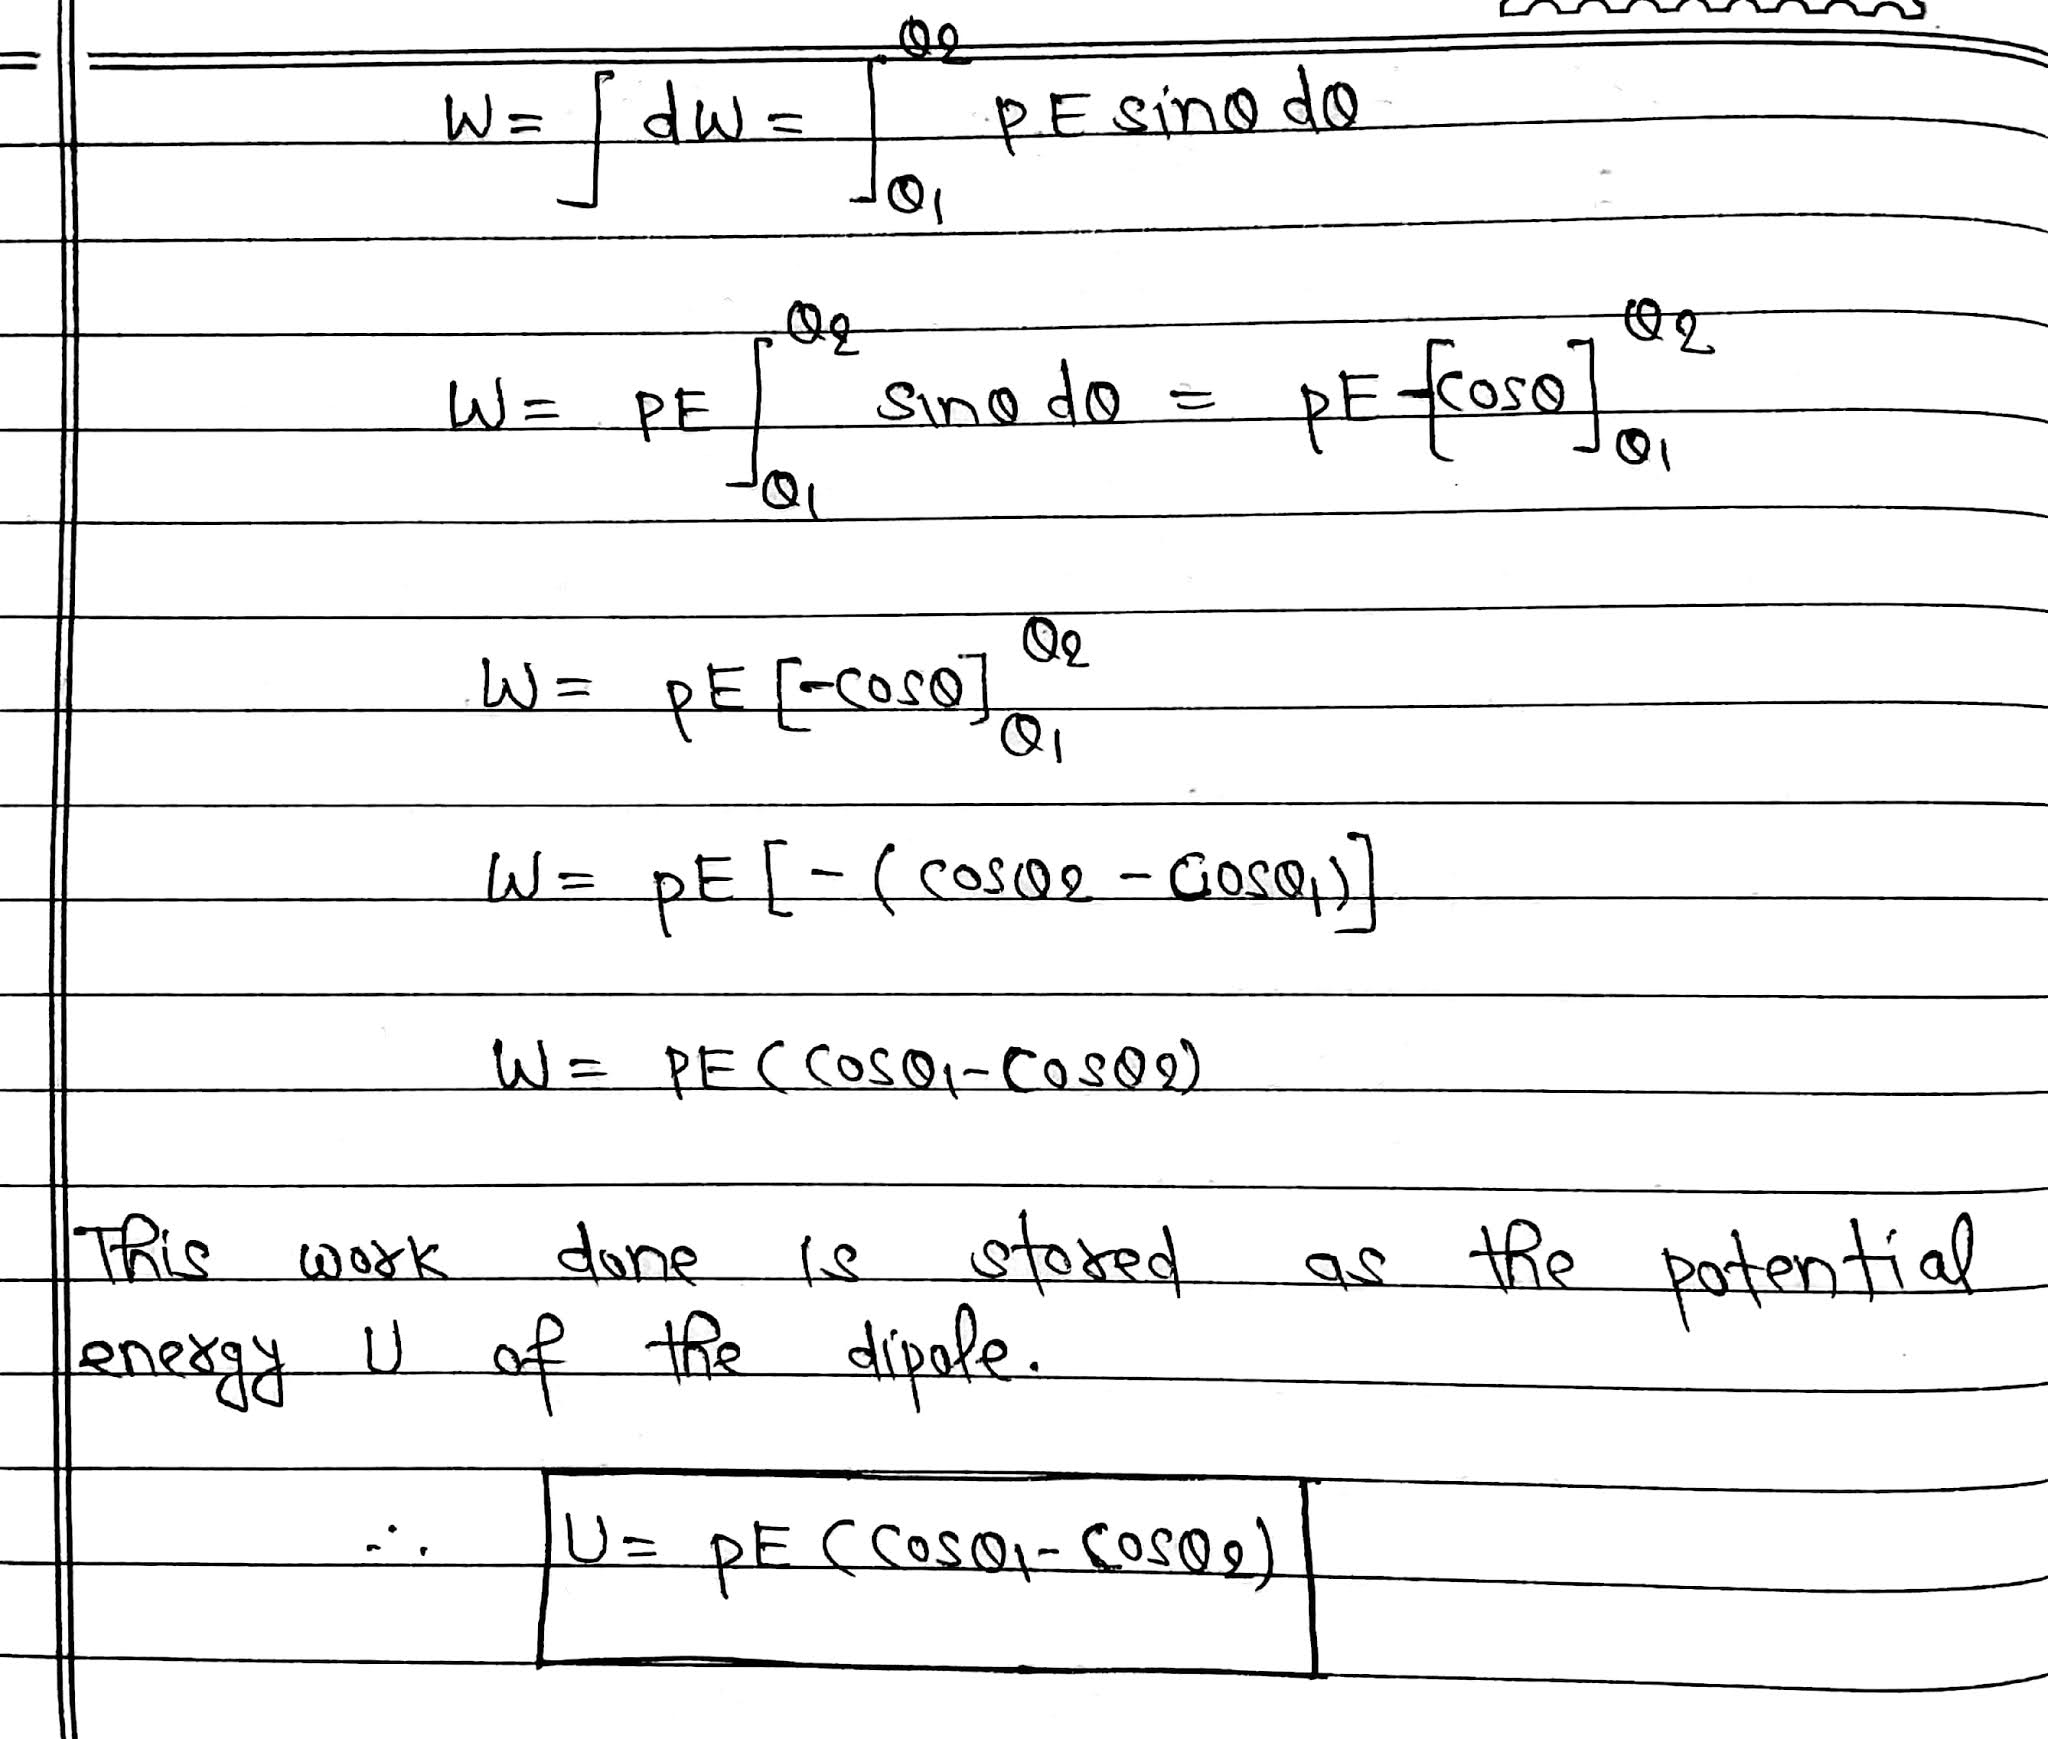 W = ∫ dW = ∫_θ1^θ2 pE sinθ dθ
W = pE ∫_θ1^θ2 sinθ dθ = pE -[cosθ]_θ1^θ2
W = pE [-cosθ]_θ1^θ2
W = pE [-(cosθ2 - cosθ1)]
W = pE (cosθ1 - cosθ2)
This work done is stored as the potential
energy U of the dipole.
∴ U = pE (cosθ1 - cosθ2)